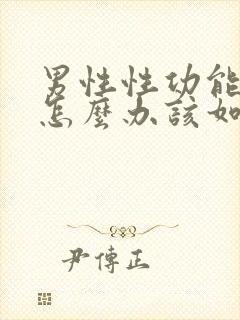 男性性功能
怎麼办該如
尹傳正